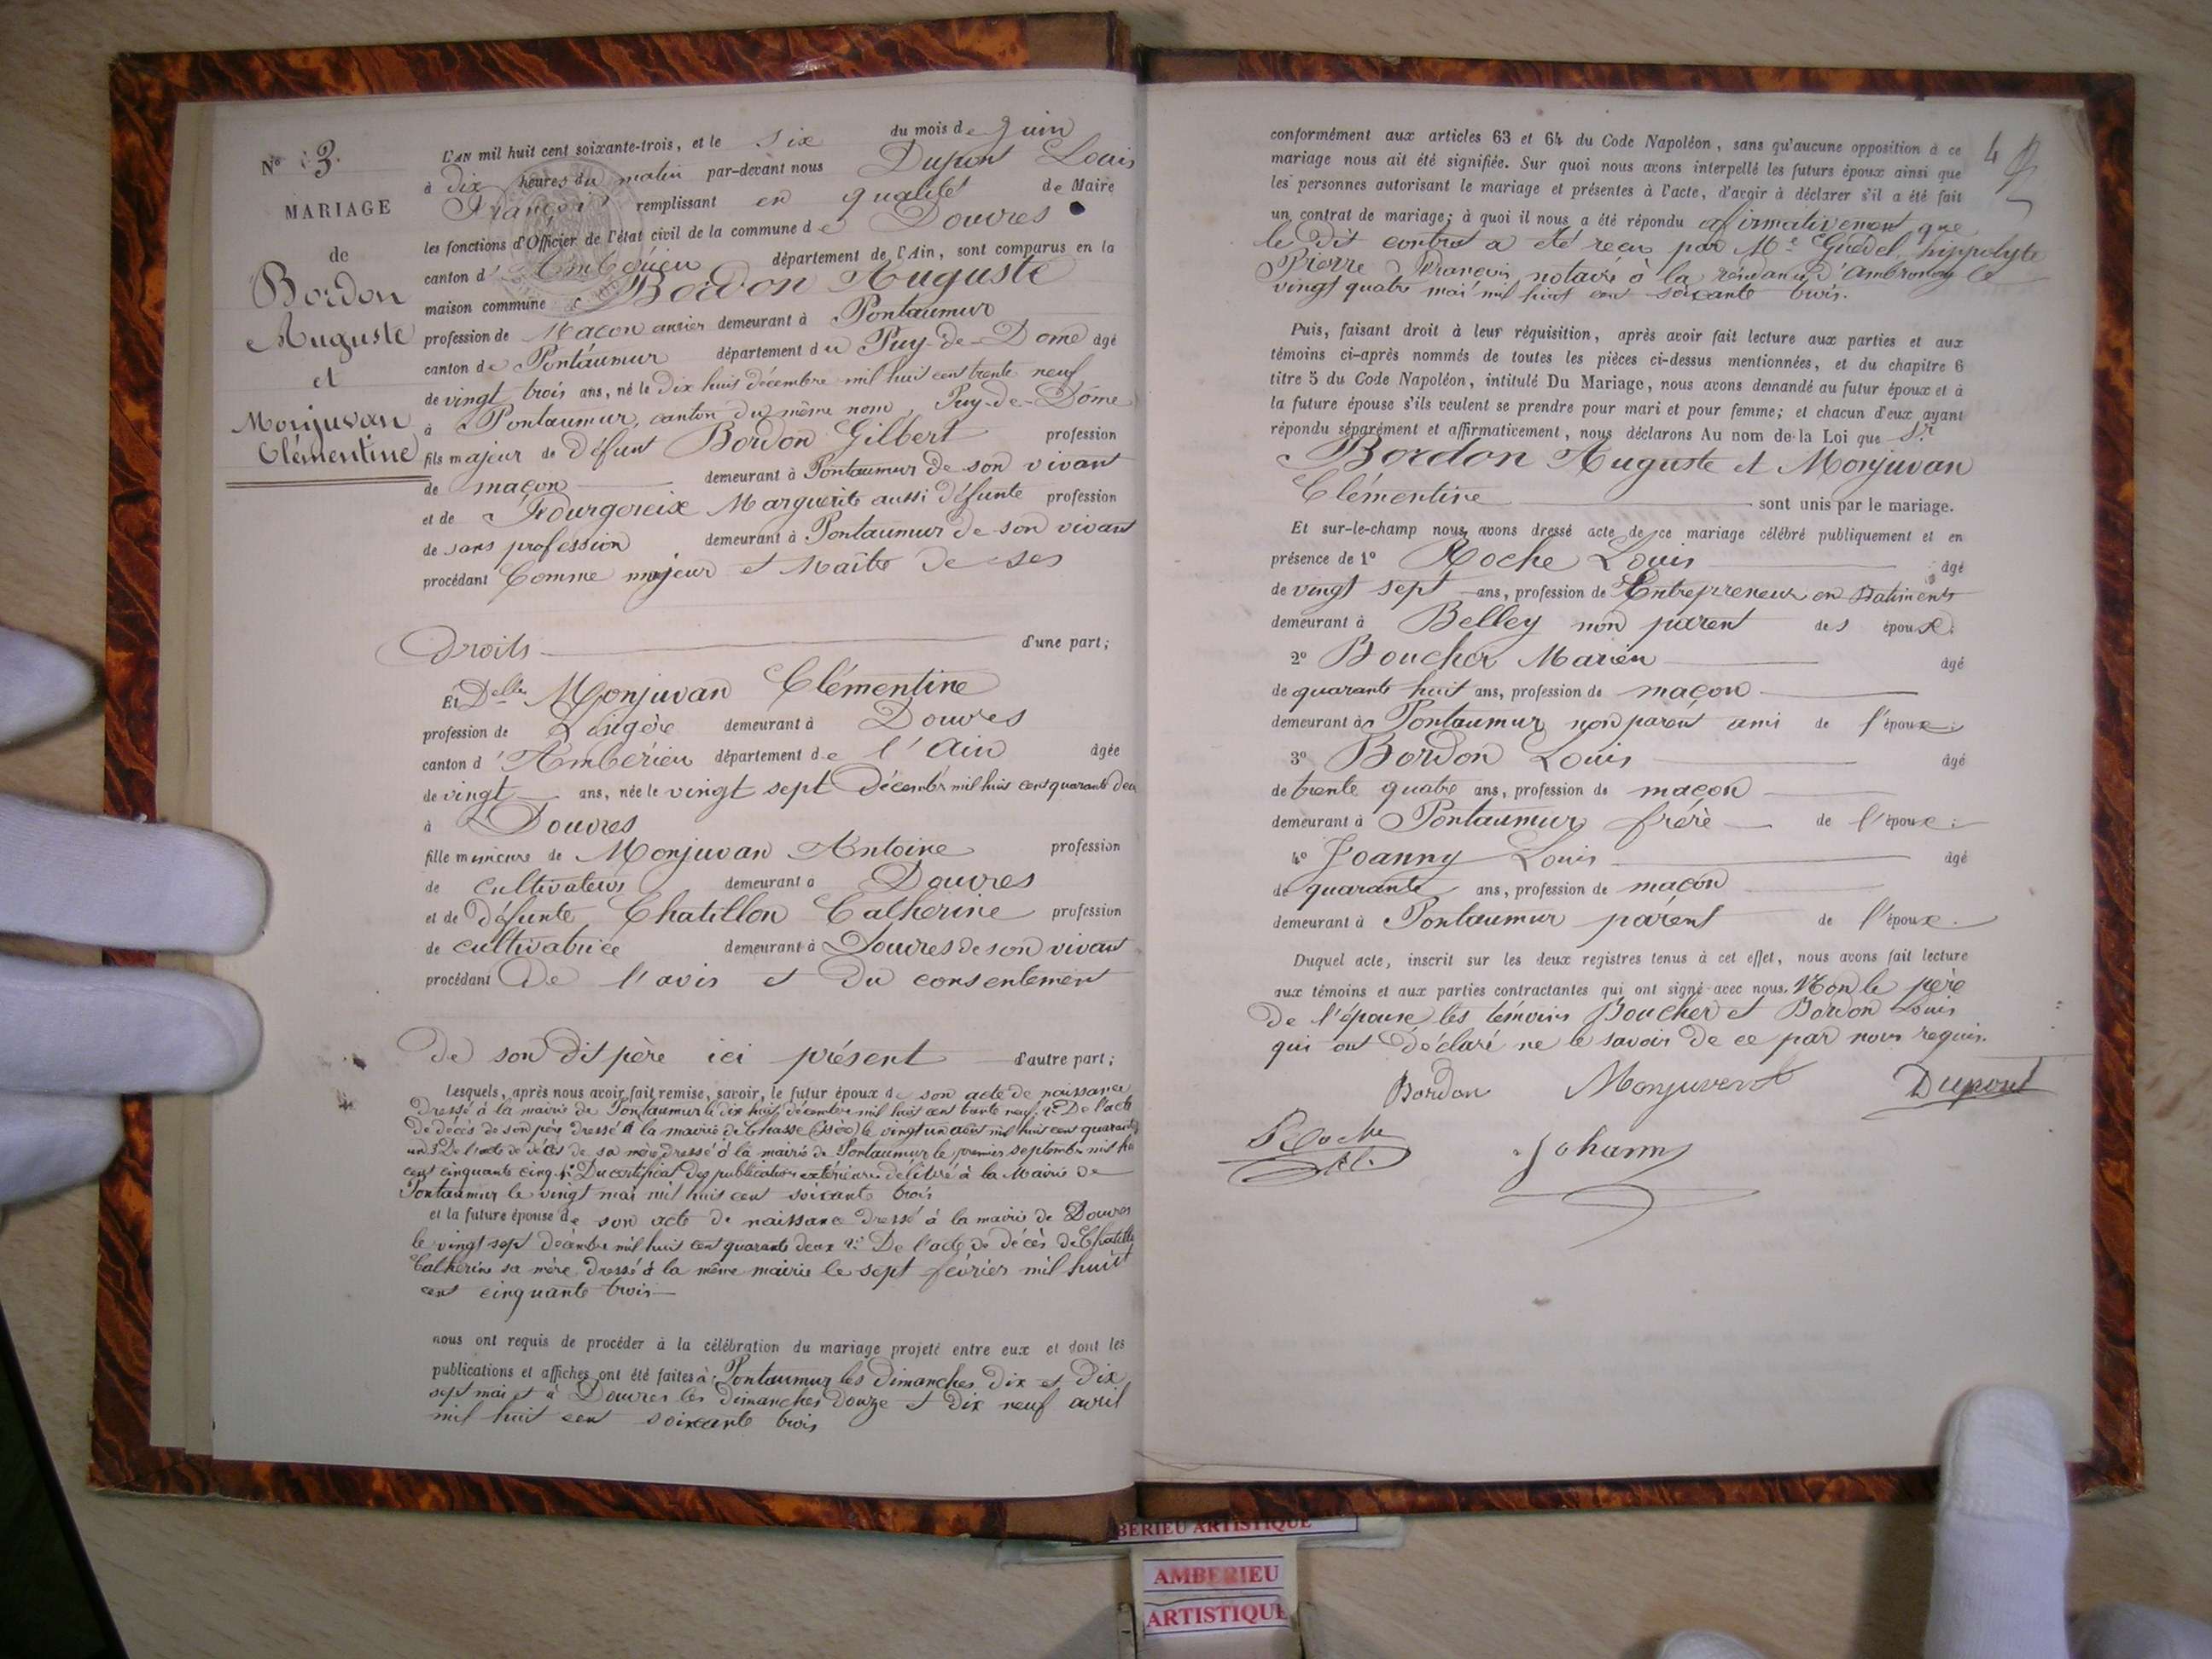 N° 3.
MARIAGE
de
Bordon
Auguste
et
Monjuvan
Clémentine
L'AN mil huit cent soixante-trois, et le six du mois de Juin
à dix heures du matin par-devant nous Dupont Louis
François remplissant en qualité de Maire
les fonctions d'Officier de l'état civil de la commune de Douvres
canton d'Ambérieu département de l'Ain, sont comparus en la
maison commune Bordon Auguste
profession de Maçon demeurant à Pontaumur
canton de Pontaumur département du Puy-de-Dome âgé
de vingt trois ans, né le dix huit décembre mil huit cent trente neuf
à Pontaumur, canton du même nom, Puy-de-Dôme
fils majeur de défunt Bordon Gilbert profession
de maçon demeurant à Pontaumur de son vivant
et de Fourgoreix Marguerite aussi défunte profession
de sans profession demeurant à Pontaumur de son vivant
procédant Comme majeur et Maître de ses
Droits d'une part;
Et Delle Monjuvan Clémentine
profession de Lingère demeurant à Douvres
canton d'Ambérieu département de l'Ain âgée
de vingt ans, née le vingt sept Décembre mil huit cent quarante deu
à Douvres
fille mineure de Monjuvan Antoine profession
de cultivateur demeurant à Douvres
et de défunte Chatillon Catherine profession
de cultivatrice demeurant à Douvres de son vivant
procédant De l'avis et du consentement
de son dit père ici présent d'autre part;
Lesquels, après nous avoir fait remise, savoir, le futur époux de son acte de naissance
dressé à la mairie de Pontaumur le dix huit décembre mil huit cent trente neuf, 2° De l'acte
de décès de son père dressé à la mairie de Chasse (Isère) le vingt un août mil huit cent quarante
un 3° De l'acte de décès de sa mère dressé à la mairie de Pontaumur le premier septembre mil hu
cent cinquante cinq 4° Du certificat des publications extérieures délivré à la Mairie de
Pontaumur le vingt mai mil huit cent soixante trois
et la future épouse de son acte de naissance dressé à la mairie de Douvres
le vingt sept décembre mil huit cent quarante deux 2° De l'acte de décès de Chatillo
Catherine sa mère dressé à la même mairie le sept février mil huit
cent cinquante trois
nous ont requis de procéder à la célébration du mariage projeté entre eux et dont les
publications et affiches ont été faites à Pontaumur les dimanches dix et dix
sept mai et à Douvres les dimanches douze et dix neuf avril
mil huit cent soixante trois
4
conformément aux articles 63 et 64 du Code Napoléon, sans qu'aucune opposition à ce
mariage nous ait été signifiée. Sur quoi nous avons interpellé les futurs époux ainsi que
les personnes autorisant le mariage et présentes à l'acte, d'avoir à déclarer s'il a été fait
un contrat de mariage; à quoi il nous a été répondu afirmativement que
le dit contrat a été recu par Me Guedel hippolyte
Pierre François notaire à la résidence d'Ambronay le
vingt quatre mai mil huit cent soixante trois.
Puis, faisant droit à leur réquisition, après avoir fait lecture aux parties et aux
témoins ci-après nommés de toutes les pièces ci-dessus mentionnées, et du chapitre 6
titre 5 du Code Napoléon, intitulé Du Mariage, nous avons demandé au futur époux et à
la future épouse s'ils veulent se prendre pour mari et pour femme; et chacun d'eux ayant
répondu séparément et affirmativement, nous déclarons Au nom de la Loi que Sr
Bordon Auguste et Monjuvan
Clémentine sont unis par le mariage.
Et sur-le-champ nous avons dressé acte de ce mariage célébré publiquement et en
présence de 1° Roche Louis âgé
de vingt sept ans, profession de Entrepreneur en Batiments
demeurant à Belley non parent des époux.
2° Boucher Marien âgé
de quarante huit ans, profession de maçon
demeurant à Pontaumur non parent ami de l'époux.
3° Bordon Louis âgé
de trente quatre ans, profession de maçon
demeurant à Pontaumur frère de l'époux.
4° Joanny Louis âgé
de quarante ans, profession de maçon
demeurant à Pontaumur parent de l'époux.
Duquel acte, inscrit sur les deux registres tenus à cet effet, nous avons fait lecture
aux témoins et aux parties contractantes qui ont signé avec nous. Non le père
De l'épouse les témoins Boucher et Bordon Louis
qui ont déclaré ne le savoir de ce par nous requis.
Bordon Monjuvent Dupont
Roche Johanny
BERIEU ARTISTIQUE
AMBERIEU
ARTISTIQUE